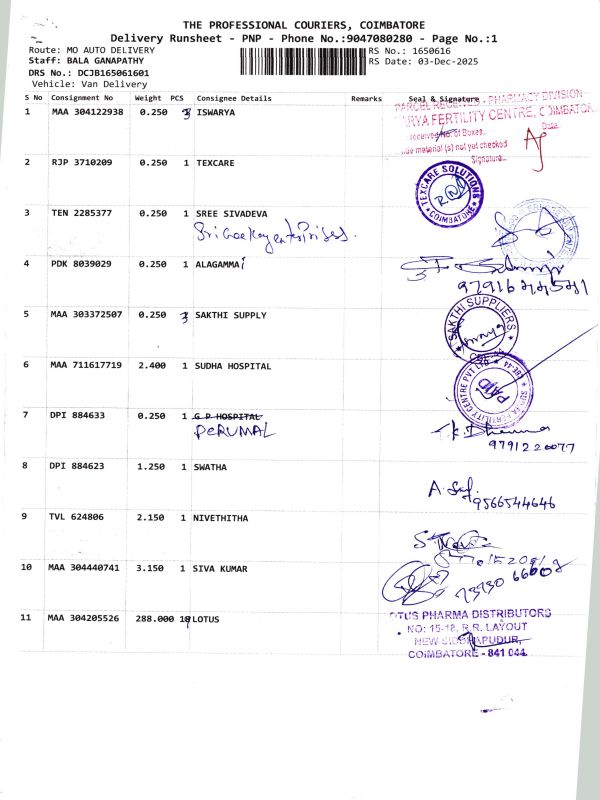 THE PROFESSIONAL COURIERS, COIMBATORE
Delivery Runsheet - PNP - Phone No.:9047080280 - Page No.:1
Route: MO AUTO DELIVERY RS No.: 1650616
Staff: BALA GANAPATHY RS Date: 03-Dec-2025
DRS No.: DCJB165061601
Vehicle: Van Delivery
S No Consignment No Weight PCS Consignee Details Remarks Seal & Signature
1 MAA 304122938 0.250 3 ISWARYA
PARCEL RECEIVED - PHARMACY DIVISION
ARYA FERTILITY CENTRE, COIMBATOR
received No. of Boxes..
Date
material (s) not yet checked
Signature..
2 RJP 3710209 0.250 1 TEXCARE
TEXCARE SOLUTIONS
COIMBATORE
3 TEN 2285377 0.250 1 SREE SIVADEVA
4 PDK 8039029 0.250 1 ALAGAMMAI
5 MAA 303372507 0.250 3 SAKTHI SUPPLY
SAKTHI SUPPLIERS
6 MAA 711617719 2.400 1 SUDHA HOSPITAL
FERTILITY CENTRE PVT LTD
7 DPI 884633 0.250 1 G P HOSPITAL
PERUMAL
9791220077
8 DPI 884623 1.250 1 SWATHA
9566544646
9 TVL 624806 2.150 1 NIVETHITHA
10 MAA 304440741 3.150 1 SIVA KUMAR
11 MAA 304205526 288.000 18 LOTUS
OTUS PHARMA DISTRIBUTORS
NO: 15-18, R.R. LAYOUT
NEW SIDDHAPUDUR,
COIMBATORE - 641 044.